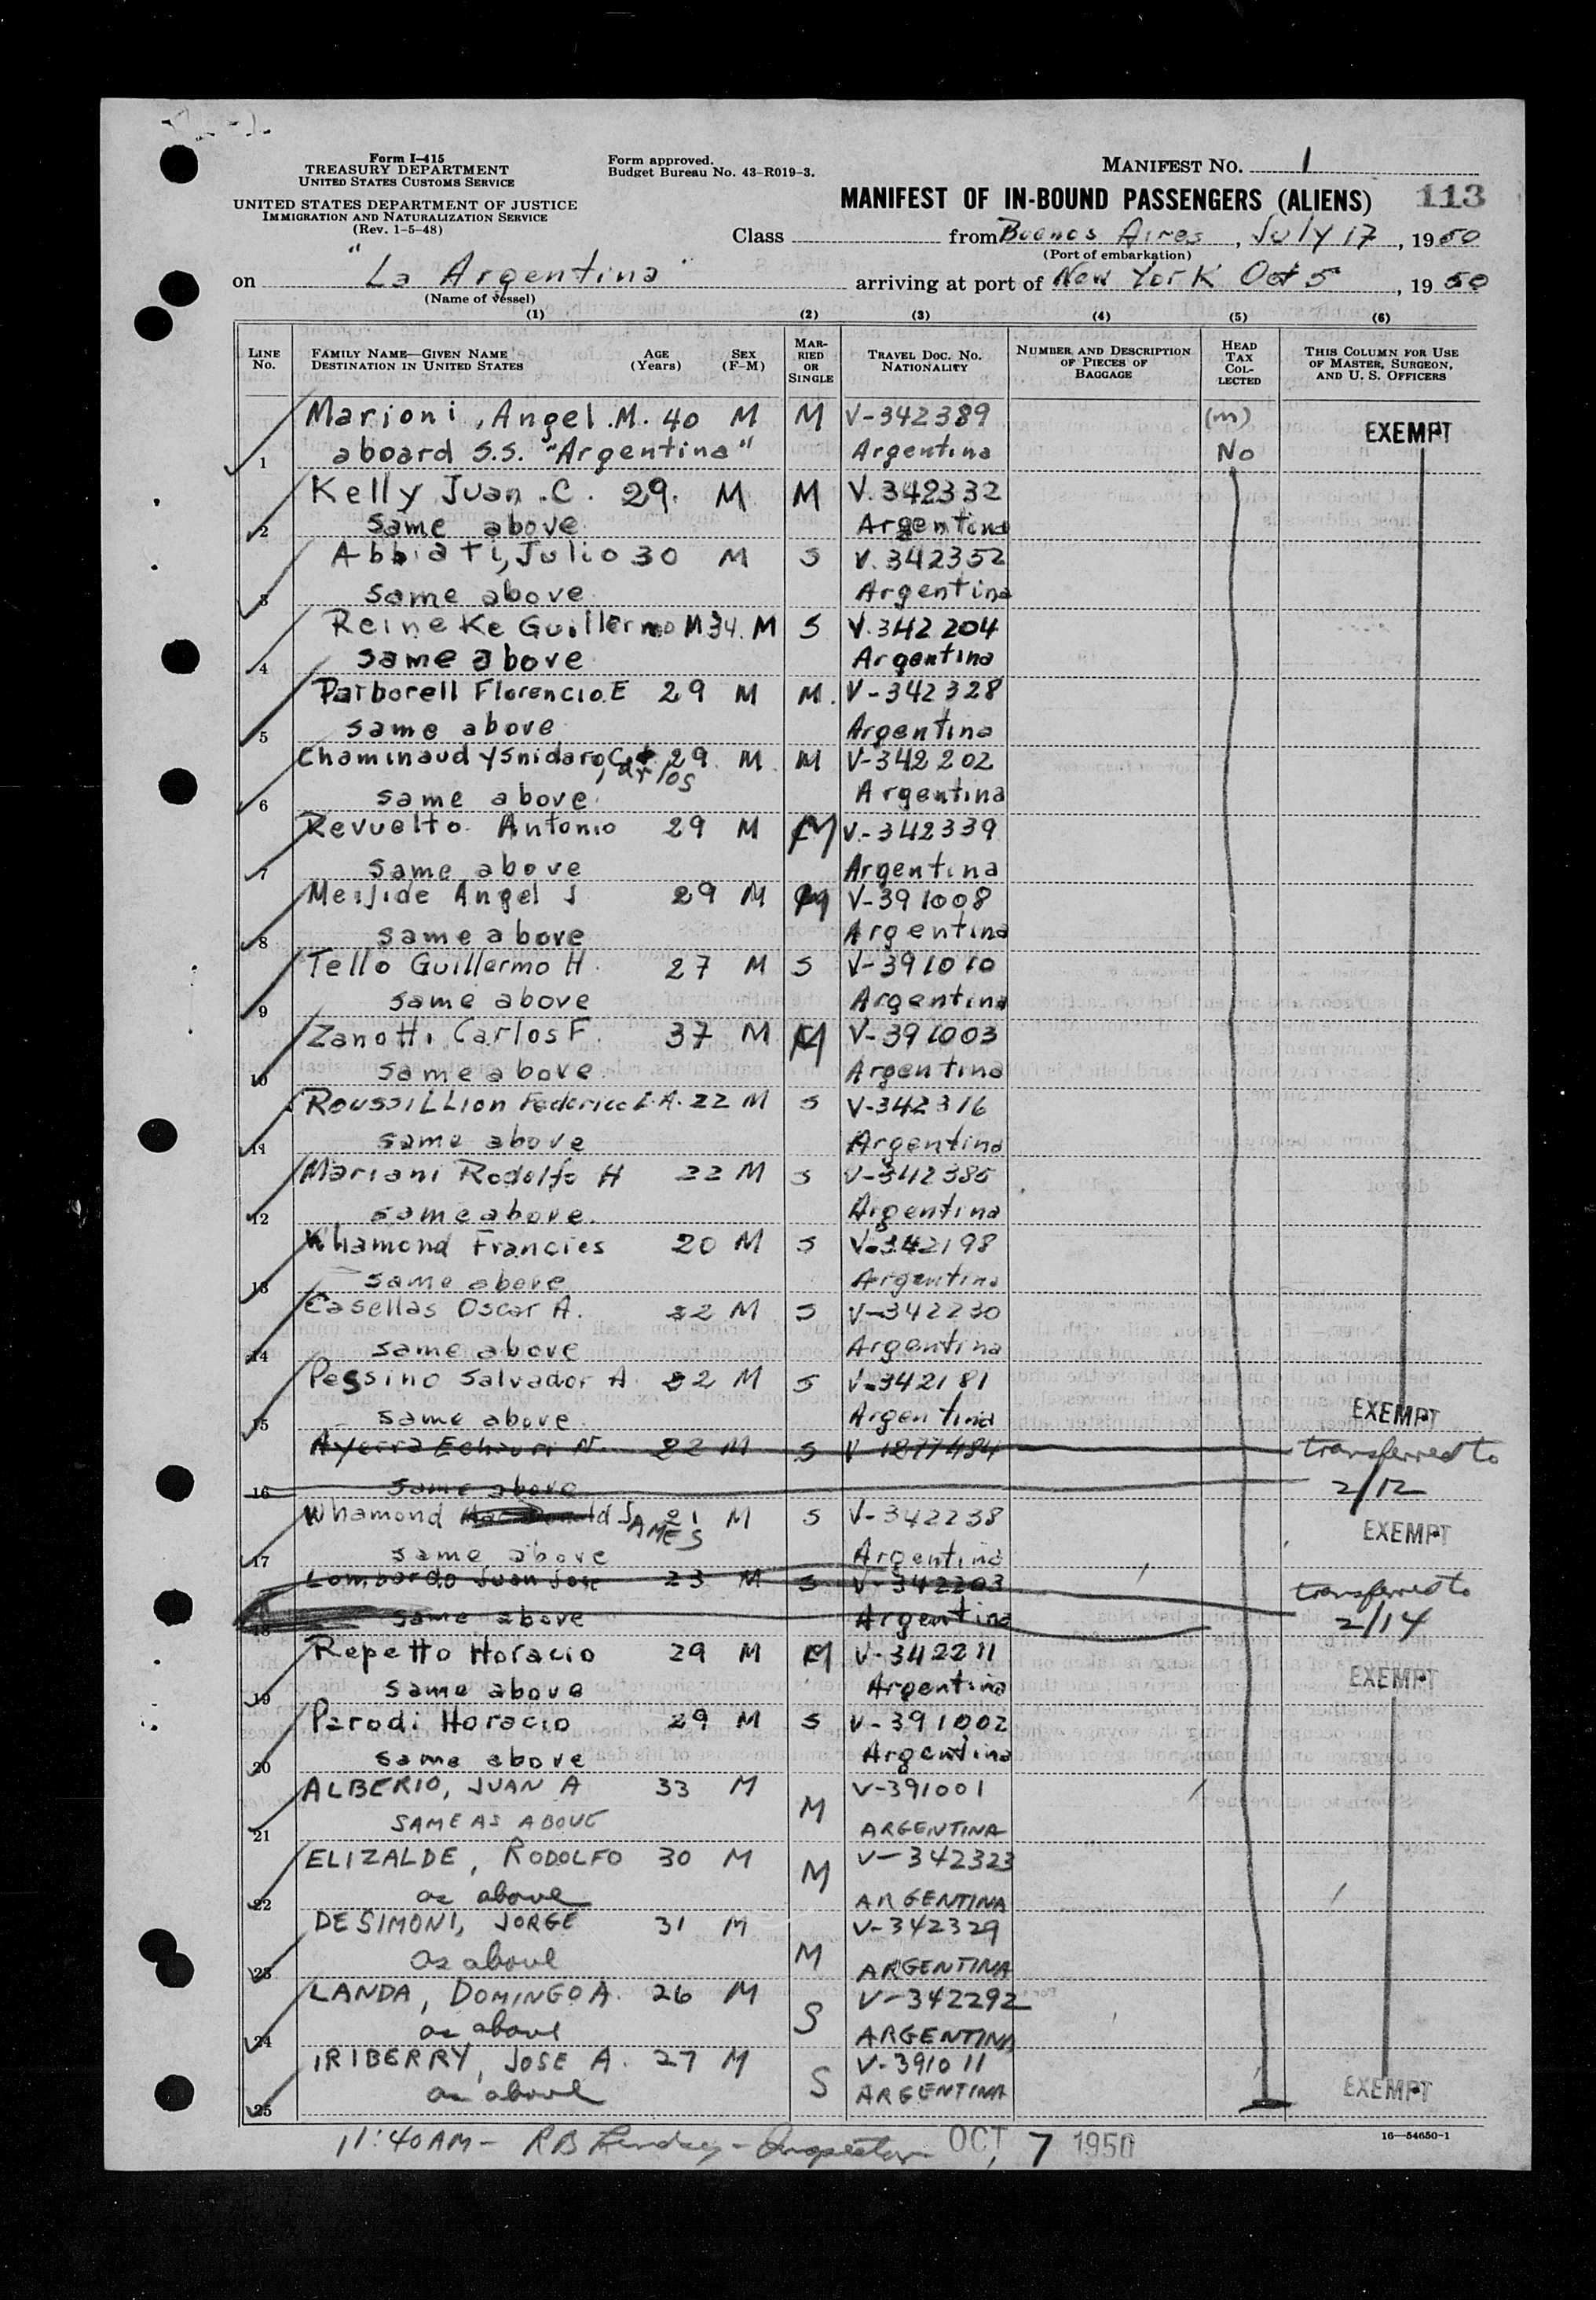 Form I-415
TREASURY DEPARTMENT
UNITED STATES CUSTOMS SERVICE
UNITED STATES DEPARTMENT OF JUSTICE
IMMIGRATION AND NATURALIZATION SERVICE
(Rev. 1-5-48)
Form approved.
Budget Bureau No. 43-R019-3.
MANIFEST NO. 1
MANIFEST OF IN-BOUND PASSENGERS (ALIENS) 113
Class from Buenos Aires, July 17, 1950
(Port of embarkation)
on "La Argentina" arriving at port of New York Oct 5, 1950
(Name of vessel)
(1) (2) (3) (4) (5) (6)
LINE No. FAMILY NAME—GIVEN NAME DESTINATION IN UNITED STATES AGE (Years) SEX (F-M) MARRIED OR SINGLE TRAVEL DOC. NO. NATIONALITY NUMBER AND DESCRIPTION OF PIECES OF BAGGAGE HEAD TAX COLLECTED THIS COLUMN FOR USE OF MASTER, SURGEON, AND U. S. OFFICERS
Marioni, Angel .M. 40 M M V-342389 (m) EXEMPT
1 aboard S.S. "Argentina" Argentina No
Kelly Juan .C. 29. M M V.342332
2 same above Argentina
Abbiati, Julio 30 M S V.342352
3 same above Argentina
Reineke Guillermo M 34. M S V.342204
4 same above Argentina
Parborell Florencio.E 29 M M. V-342328
5 same above Argentina
Chaminaud y Snidaro, Carlos 29 M M V-342202
6 same above Argentina
Revuelto Antonio 29 M M V.-342339
7 same above Argentina
Meijide Angel J 29 M M V-391008
8 same above Argentina
Tello Guillermo H. 27 M S V-391010
9 same above Argentina
Zanotti Carlos F. 37 M M V-391003
10 same above Argentina
Roussillion Federico L.A. 22 M S V-342316
11 same above Argentina
Mariani Rodolfo H 22 M S V-342385
12 same above. Argentina
Whamond Francies 20 M S V-342198
13 same above Argentina
Casellas Oscar A. 22 M S V-342230
14 same above Argentina
Pessino Salvador A 22 M S V-342181
15 same above Argentina EXEMPT
Ayerra Echauri N. 22 M S V 1877484 transferred to
16 same above 2/12
Whamond James 21 M S V-342238 EXEMPT
17 same above Argentina
Lombardo Juan Jose 23 M S V-342203 transferred to
18 same above Argentina 2/14
Repetto Horacio 29 M M V-342211 EXEMPT
19 same above Argentina
Parodi Horacio 29 M S V-391002
20 same above Argentina
ALBERIO, JUAN A 33 M M V-391001
21 SAME AS ABOVE ARGENTINA
ELIZALDE, RODOLFO 30 M M V-342323
22 as above ARGENTINA
DESIMONI, JORGE 31 M M V-342329
23 as above ARGENTINA
LANDA, DOMINGO A. 26 M S V-342292
24 as above ARGENTINA
IRIBERRY, JOSE A. 27 M S V-391011
25 as above ARGENTINA EXEMPT
11:40AM - RB Lindsey - Inspector OCT 7 1950
16—54650-1